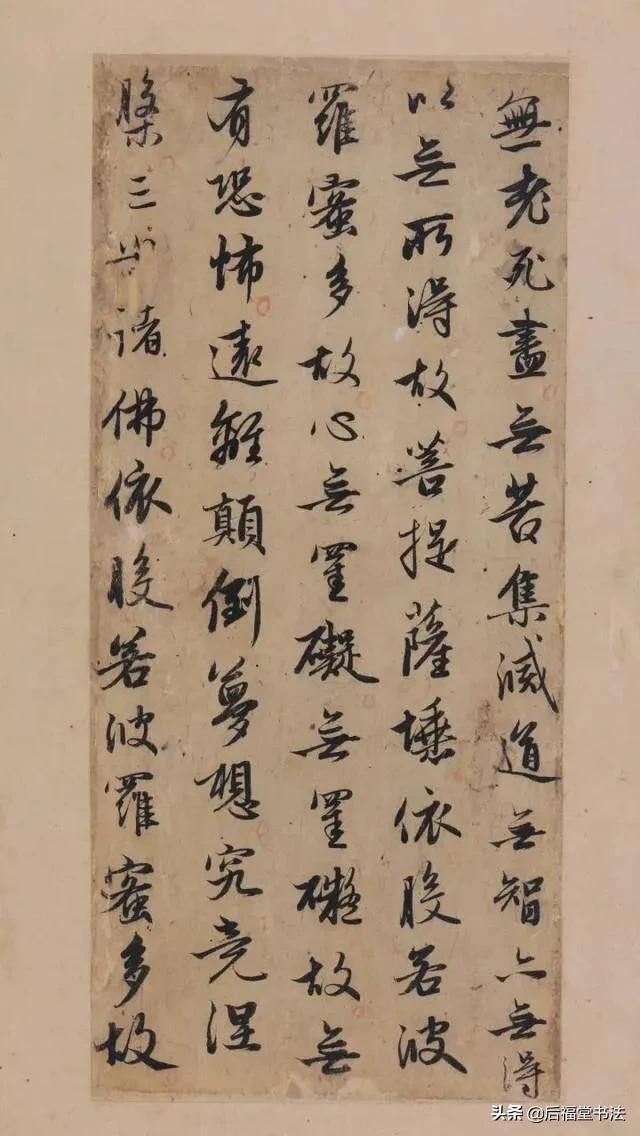 無老死盡無苦集滅道無智亦無得
以無所得故菩提薩埵依般若波
羅蜜多故心無罣礙無罣礙故無
有恐怖遠離顛倒夢想究竟涅
槃三世諸佛依般若波羅蜜多故
头条 @后福堂书法